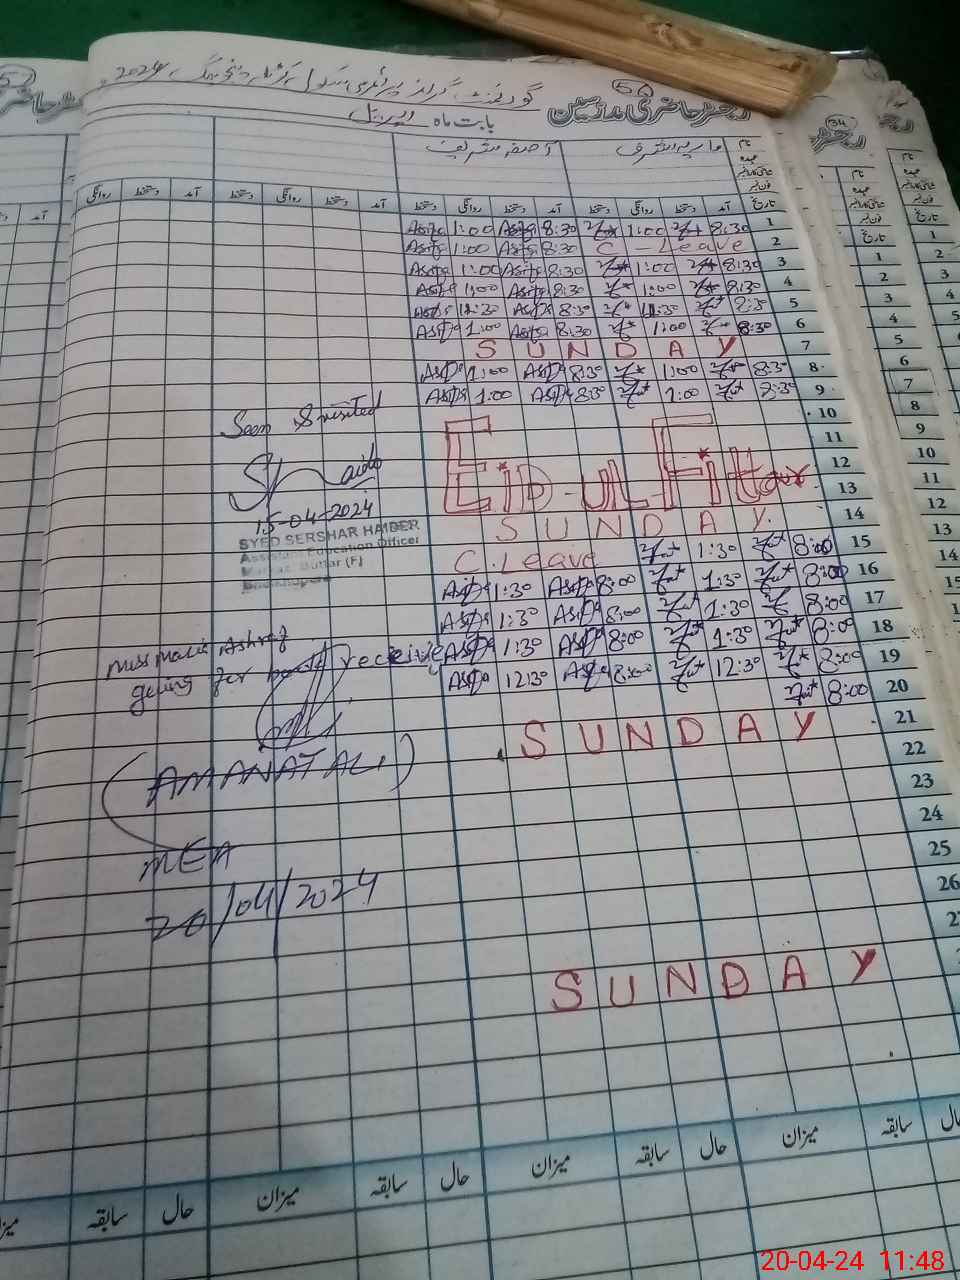 گورنمنٹ گرلز پرائمری سکول 2024
50
رجسٹر حاضری مدرسین
بابت ماہ اپریل
نام ماریہ اشرف آصفہ شریف
عہدہ
شناختی کارڈ نمبر
فون نمبر
تاریخ آمد دستخط روانگی دستخط آمد دستخط روانگی دستخط آمد دستخط روانگی دستخط آمد دستخط روانگی
1 8:30 1:00 8:30 Asifa 1:00 Asifa
2 C - Leave 8:30 Asifa 1:00 Asifa
3 8:30 1:00 8:30 Asifa 1:00 Asifa
4 8:30 1:00 8:30 Asifa 1:00 Asifa
5 8:30 12:30 8:30 Asifa 12:30 Asifa
6 8:30 1:00 8:30 Asifa 1:00 Asifa
7 SUNDAY
8 8:30 1:00 8:30 Asifa 1:00 Asifa
9 8:30 1:00 8:30 Asifa 1:00 Asifa
10
11
12 EID-UL-Fitar
13
14 SUNDAY
15 8:00 1:30 C.Leave
16 8:00 1:30 8:00 Asifa 1:30 Asifa
17 8:00 1:30 8:00 Asifa 1:30 Asifa
18 8:00 1:30 8:00 Asifa 1:30 Asifa
19 8:00 12:30 8:00 Asifa 12:30 Asifa
20 8:00
21 SUNDAY
22
23
24
25
26
SUNDAY
Seen & visited
15-04-2024
SYED SERSHAR HAIDER
Assistant Education Officer
Markaz Buttar (F)
Sheikhupura
Miss Maria Ashraf
going for books receive
(AMANAT ALI)
MEA
20/04/2024
میزان حال سابقہ میزان حال سابقہ میزان حال سابقہ
34
20-04-24 11:48